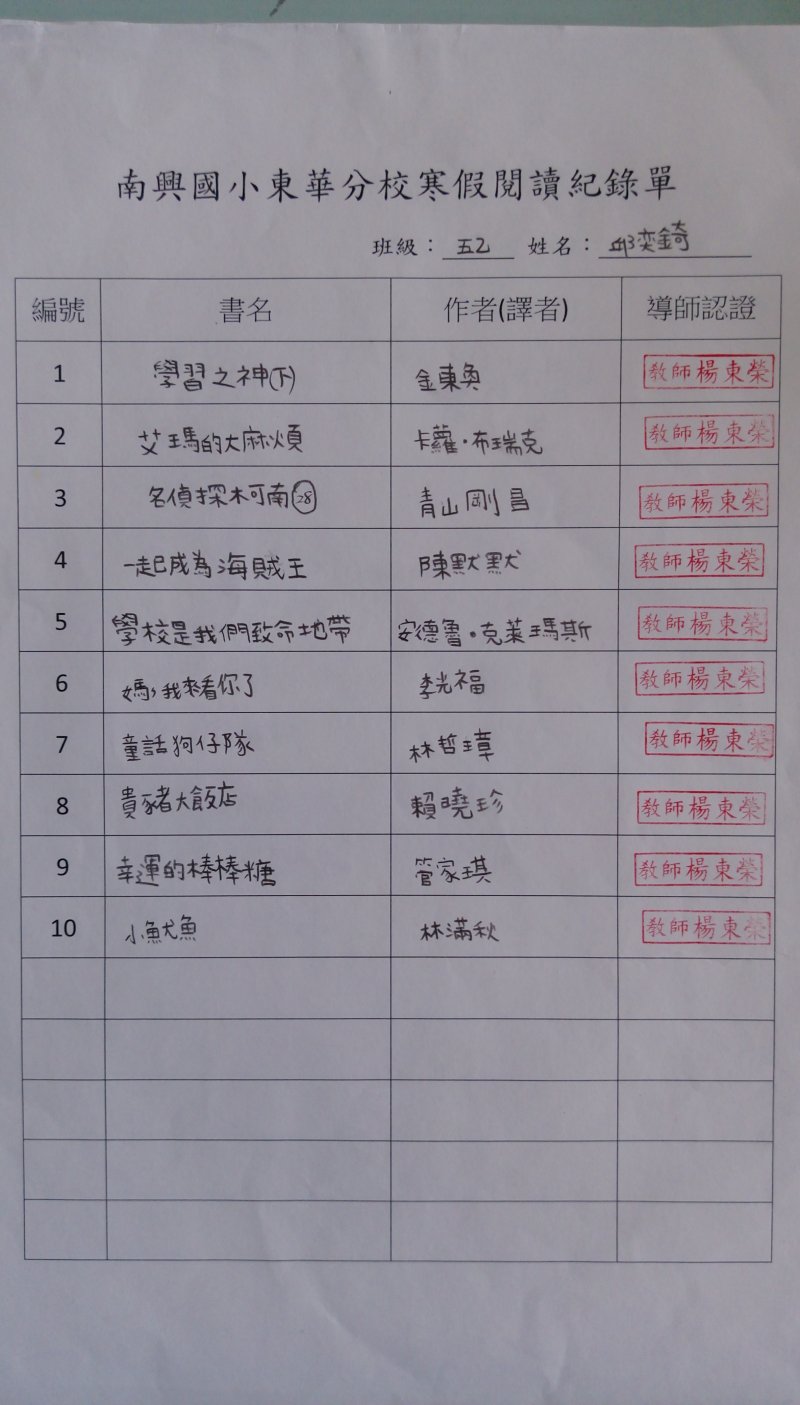 南興國小東華分校寒假閱讀紀錄單
班級：五乙 姓名：邱奕錡
編號 書名 作者(譯者) 導師認證
1 學習之神(下) 金東奐 教師楊東榮
2 艾瑪的大麻煩 卡蘿·布瑞克 教師楊東榮
3 名偵探柯南28 青山剛昌 教師楊東榮
4 一起成為海賊王 陳默默 教師楊東榮
5 學校是我們致命地帶 安德魯·克萊瑪斯 教師楊東榮
6 媽,我來看你了 李光福 教師楊東榮
7 童話狗仔隊 林哲璋 教師楊東榮
8 貴豬大飯店 賴曉珍 教師楊東榮
9 幸運的棒棒糖 管家琪 教師楊東榮
10 小魷魚 林滿秋 教師楊東榮